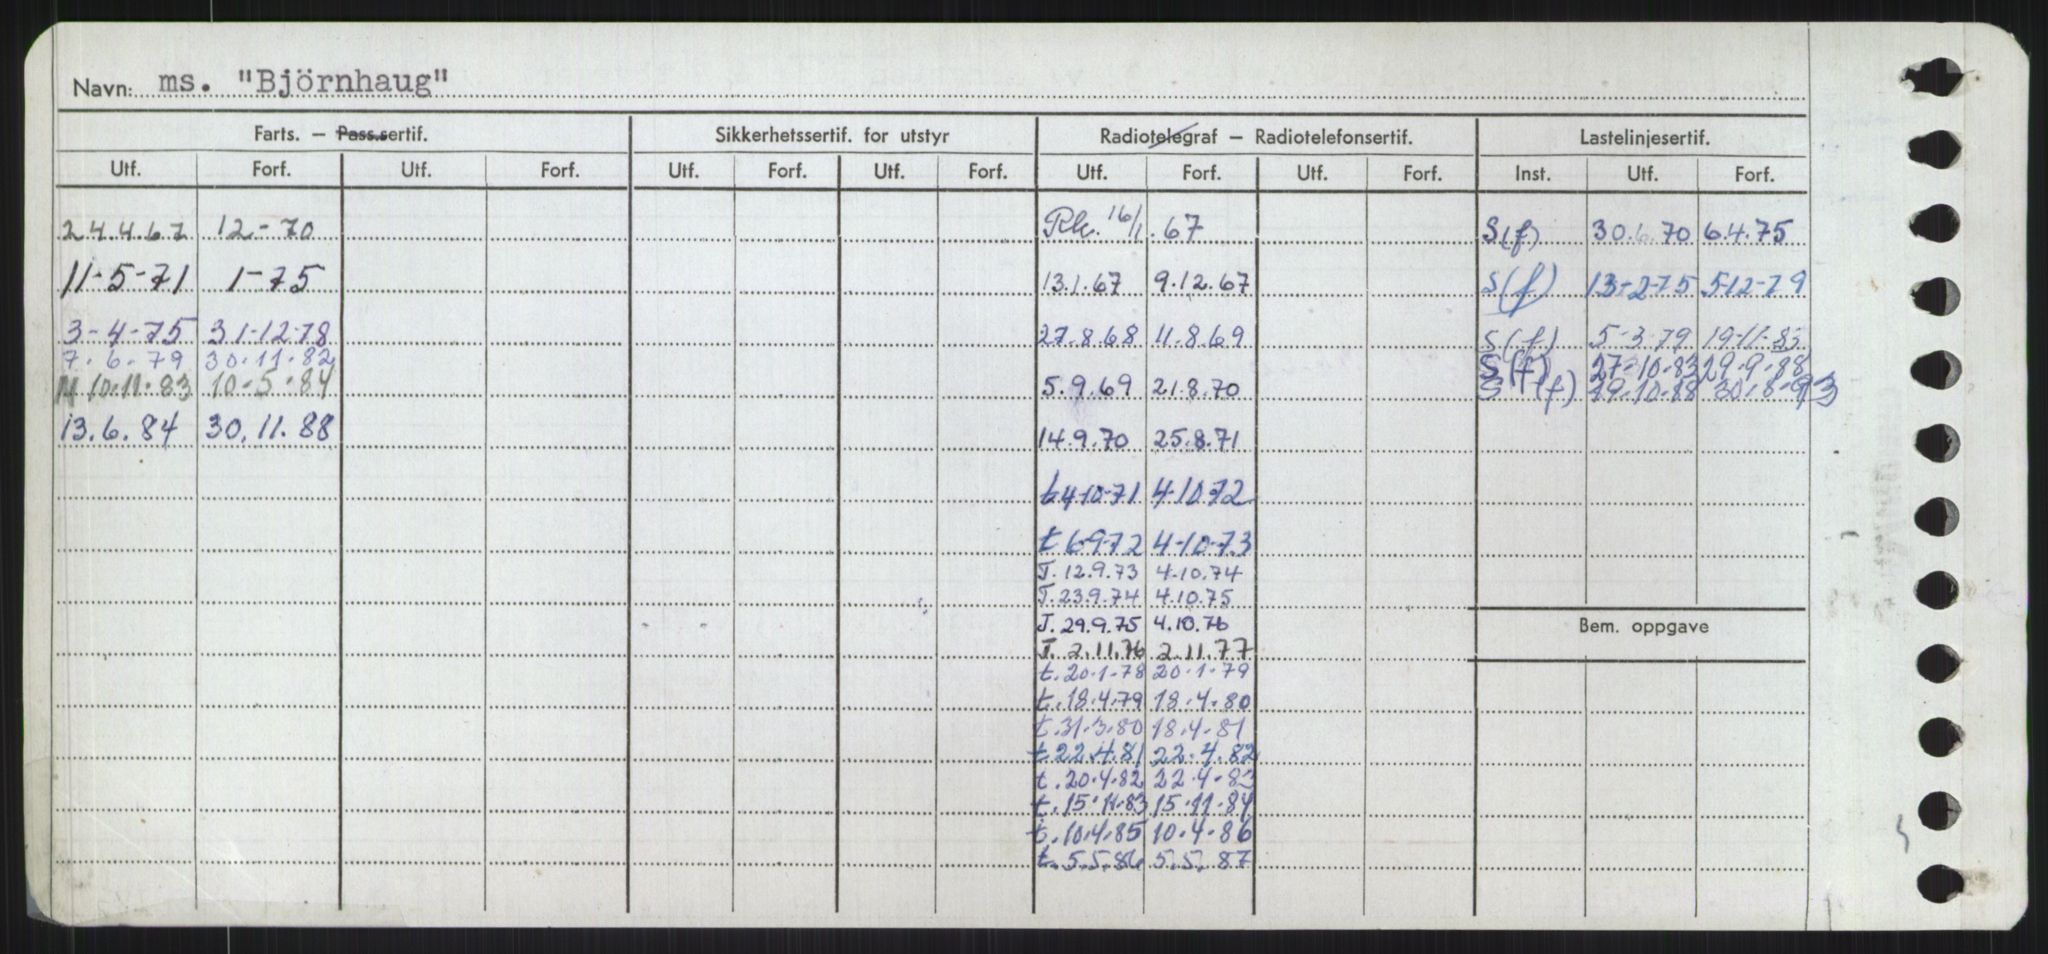 Navn: ms. "Björnhaug"
Farts. — Pass.sertif. Sikkerhetssertif. for utstyr Radiotelegraf — Radiotelefonsertif. Lastelinjesertif.
Utf. Forf. Utf. Forf. Utf. Forf. Utf. Forf. Utf. Forf. Utf. Forf. Inst. Utf. Forf.
24.4.67 12.-70 Rk. 16/1.67 S(f) 30.6.70 6.4.75
11-5-71 1-75 13.1.67 9.12.67 S(f) 13-2-75 5-12-79
3-4-75 31-12-78 27.8.68 11.8.69 S(f) 5-3-79 19-11-83
7.6.79 30.11.82 S(f) 27-10-83 29-9-88
10.11.83 10-5-84 5.9.69 21.8.70 S(f) 29-10-88 30-8-93
13.6.84 30.11.88 14.9.70 25.8.71
t 4-10-71 4-10-72
t 6-9-72 4-10-73
T. 12.9.73 4.10.74
T. 23.9.74 4.10.75
T. 29.9.75 4.10.76
T. 2.11.76 2.11.77
Bem. oppgave
t. 20.1.78 20.1.79
t. 18.4.79 18.4.80
t. 31.3.80 18.4.81
t 22.4.81 22.4.82
t. 20.4.82 22.4.83
t. 15.11.83 15.11.84
t. 10.4.85 10.4.86
t. 5.5.86 5.5.87